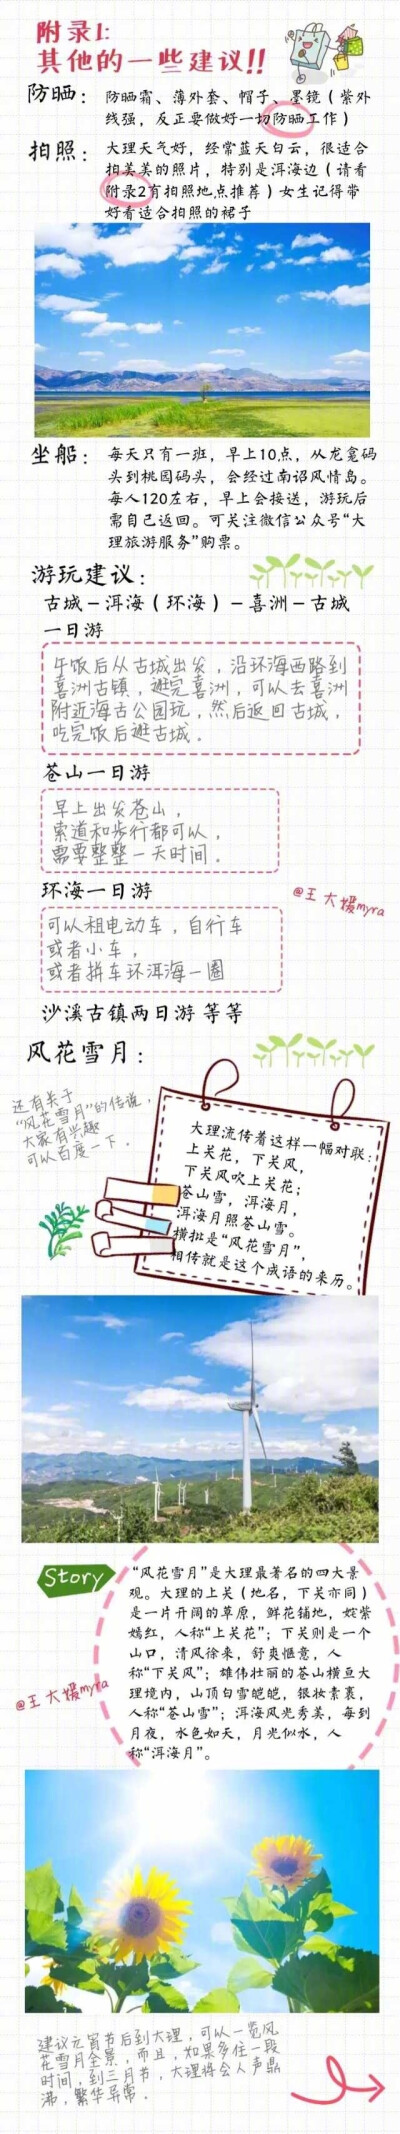 附录1:
其他的一些建议!!
防晒：
防晒霜、薄外套、帽子、墨镜（紫外
线强，反正要做好一切防晒工作）
拍照：
大理天气好，经常蓝天白云，很适合
拍美美的照片，特别是洱海边（请看
附录2有拍照地点推荐）女生记得带
好看适合拍照的裙子
坐船：
每天只有一班，早上10点，从龙龛码
头到桃园码头，会经过南诏风情岛。
每人120左右，早上会接送，游玩后
需自己返回。可关注微信公众号“大
理旅游服务”购票。
游玩建议：
古城－洱海（环海）－喜洲－古城
一日游
午饭后从古城出发，沿环海西路到
喜洲古镇，逛完喜洲，可以去喜洲
附近海古公园玩，然后返回古城，
吃完饭后逛古城。
苍山一日游
早上出发苍山，
索道和步行都可以，
需要整整一天时间。
环海一日游
@王大媛myra
可以租电动车，自行车
或者小车，
或者拼车环洱海一圈
沙溪古镇两日游 等等
风花雪月：
还有关于
“风花雪月”的传说，
大家有兴趣
可以百度一下。
大理流传着这样一幅对联：
上关花，下关风，
下关风吹上关花；
苍山雪，洱海月，
洱海月照苍山雪。
横批是“风花雪月”，
相传就是这个成语的来历。
Story
“风花雪月”是大理最著名的四大景
观。大理的上关（地名，下关亦同）
是一片开阔的草原，鲜花铺地，姹紫
嫣红，人称“上关花”；下关则是一个
山口，清风徐来，舒爽惬意，人
称“下关风”；雄伟壮丽的苍山横亘大
理境内，山顶白雪皑皑，银妆素裹，
人称“苍山雪”；洱海风光秀美，每到
月夜，水色如天，月光似水，人
称“洱海月”。
@王大媛myra
建议元宵节后到大理，可以一览风
花雪月全景，而且，如果多住一段
时间，到三月节，大理将会人声鼎
沸，繁华异常．